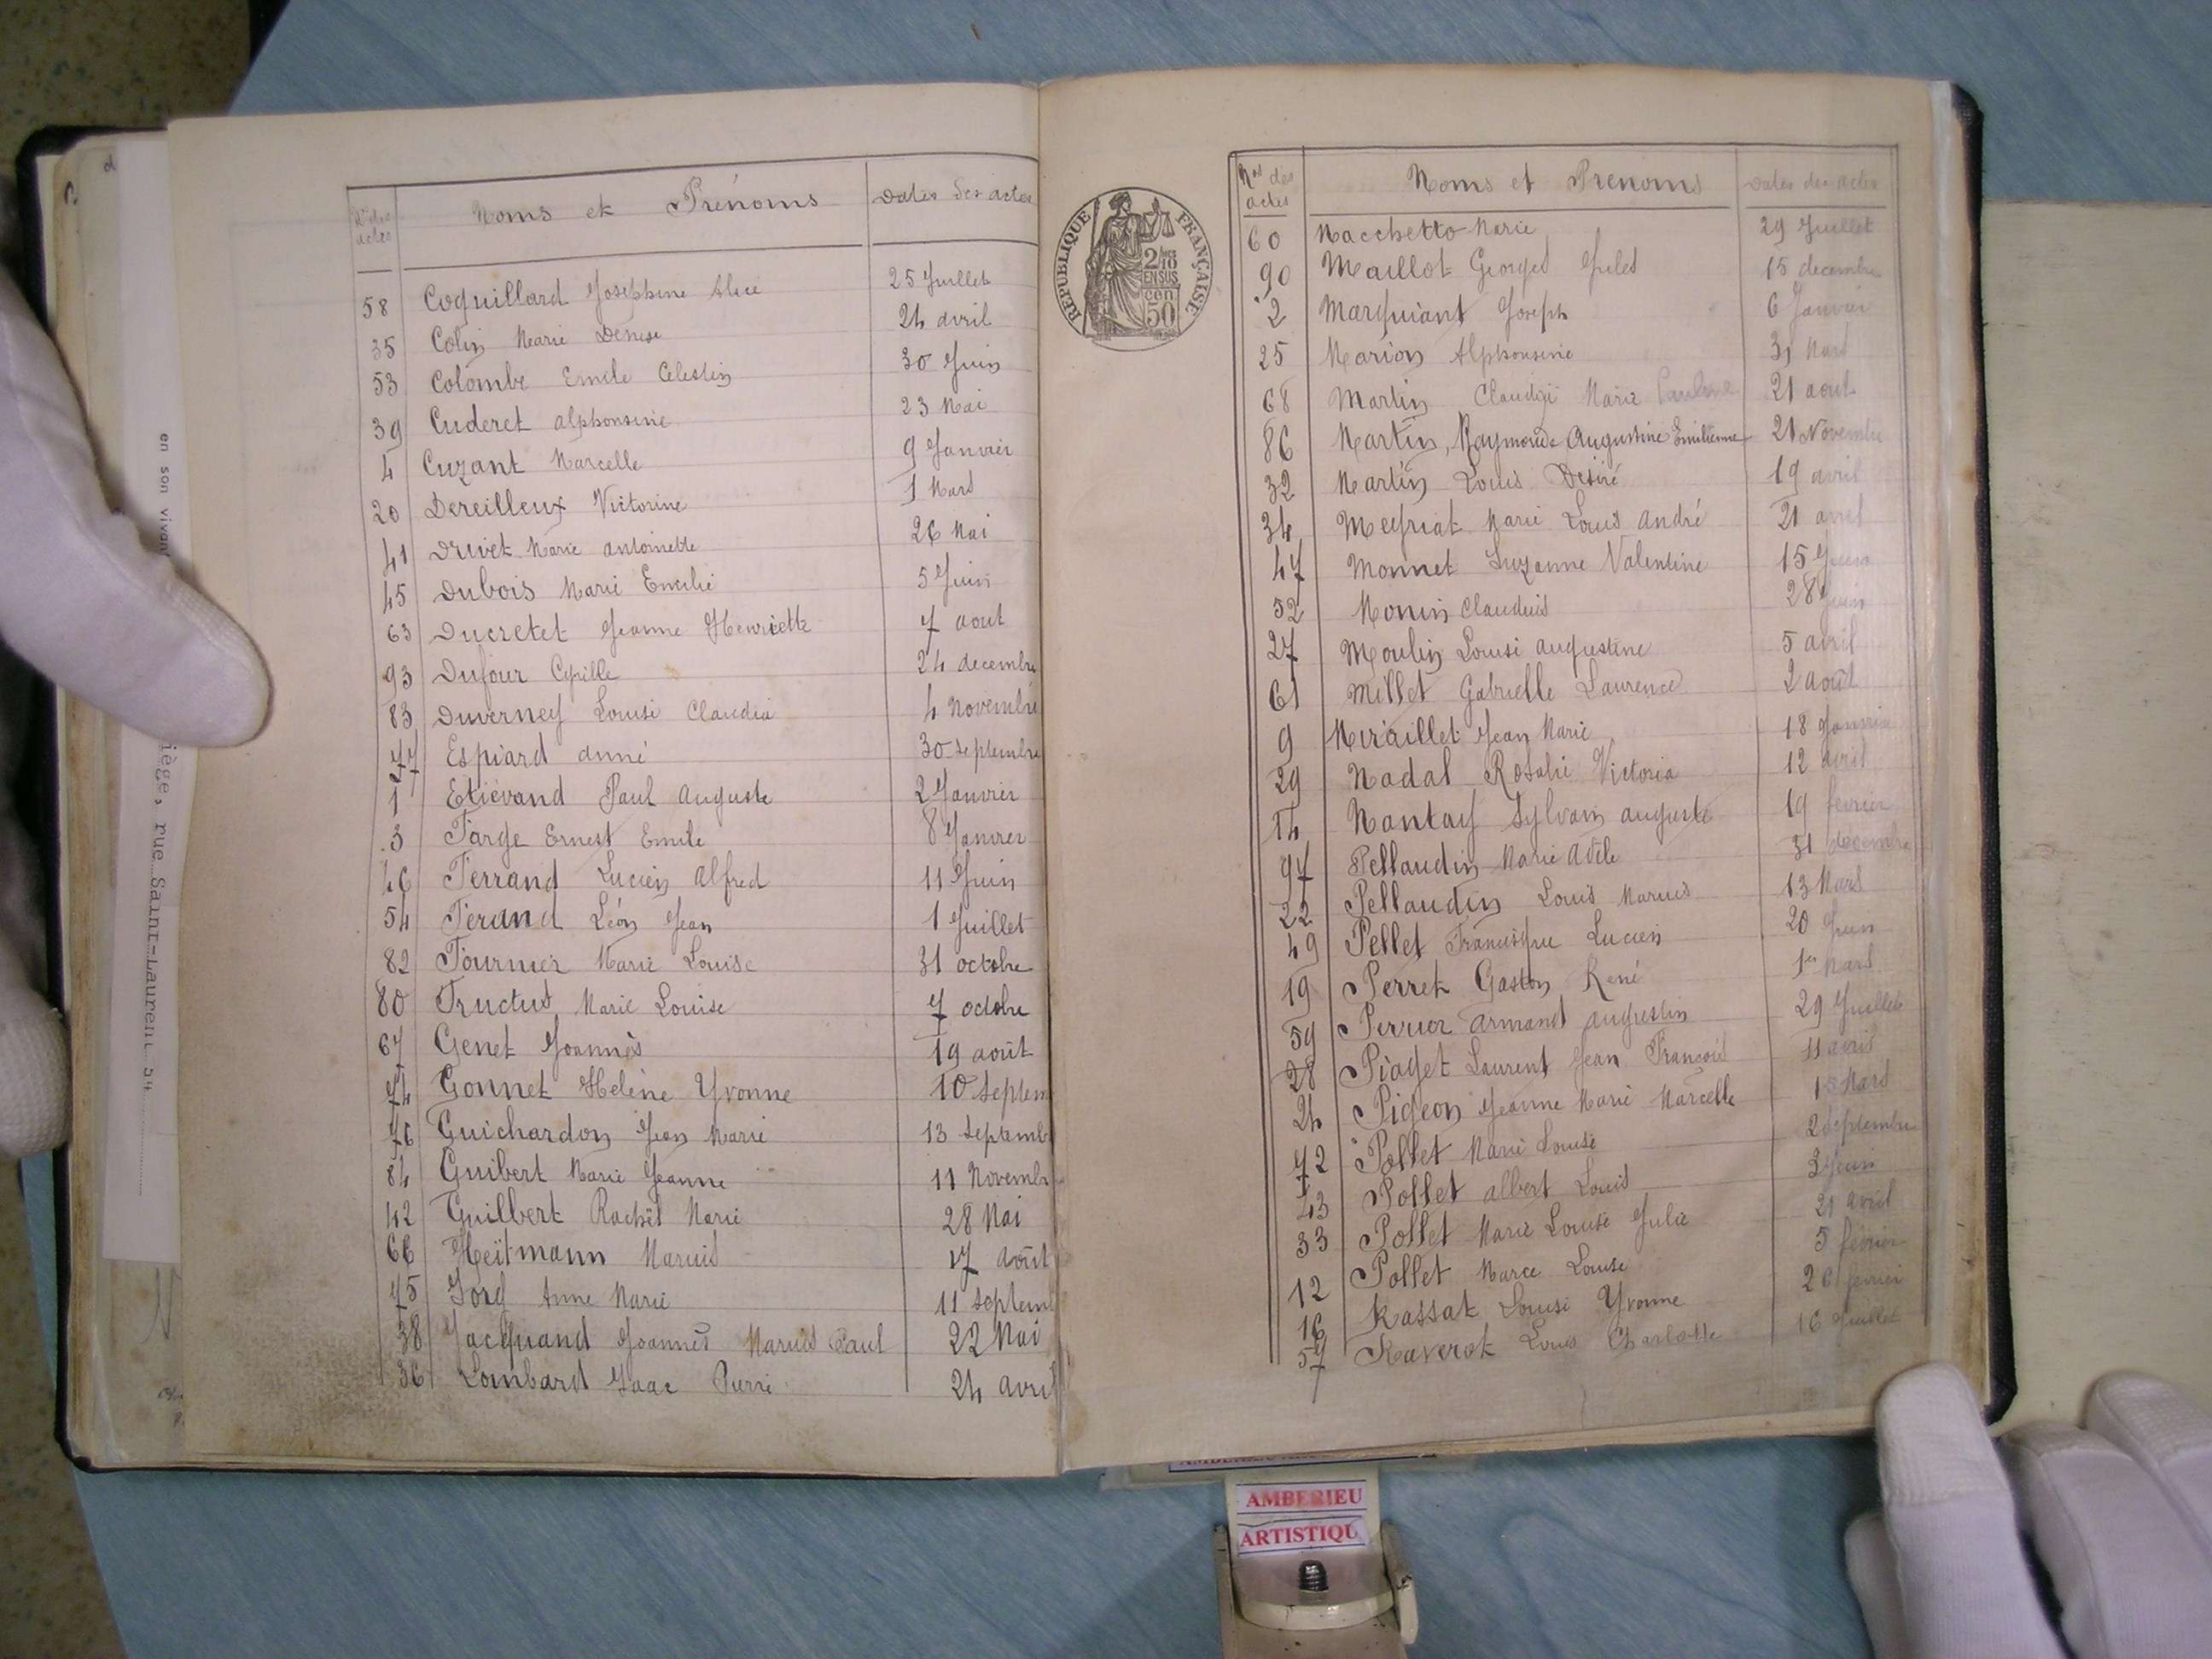 Nos des actes Noms et Prénoms Dates des actes
58 Coquillard Joséphine Alice 25 Juillet
35 Colin Marie Denise 24 avril
53 Colombe Emile Celestin 30 Juin
39 Cuderet alphonsine 23 Mai
4 Cuzant Marcelle 9 Janvier
20 Dereilleux Victorine 1 Mars
41 Drivet Marie antoinette 26 Mai
45 Dubois Marie Emilie 5 Juin
63 Ducretet Jeanne Henriette 7 aout
93 Dufour Cyrille 24 decembre
83 Duverney Louise Claudia 4 Novembre
77 Espiard anné 30 septembre
1 Etiévand Paul Auguste 2 Janvier
3 Farge Ernest Emile 8 Janvier
46 Ferrand Lucien Alfred 11 Juin
54 Ferand Léon Jean 1 Juillet
82 Fournier Marie Louise 31 octobre
80 Fructus Marie Louise 7 octobre
67 Genet Joannès 19 août
74 Gonnet Helène Yvonne 10 septem
76 Guichardon Jean Marie 13 septemb
84 Guibert Marie Jeanne 11 Novembr
42 Guilbert Rachël Marie 28 Mai
66 Heïtmann Marius 17 août
75 Jorg Anne Marie 11 septem
38 Jacquand Joannès Marius Paul 22 Mai
36 Lombard Isaac Pierre 24 avril
RÉPUBLIQUE FRANÇAISE
2/10
EN SUS
50
cen
Nos des actes Noms et Prenoms Dates des actes
60 Macchetto Marie 29 Juillet
90 Maillot Georges Jules 15 decembre
2 Marquiant Joseph 6 Janvier
25 Marion Alphonsine 31 Mars
68 Martin Claudia Marie Pauline 21 aout
86 Martin, Raymonde Augustine Emilienne 21 Novembre
32 Martin Louis Désiré 19 avril
34 Meyriat Marie Louis André 21 avril
47 Monnet Suzanne Valentine 15 Juin
52 Monin Claudius 28 Juin
27 Moulin Louise augustine 5 avril
61 Millet Gabrielle Laurence 2 août
9 Miraillet Jean Marie 18 Janvier
29 Nadal Rosalie Victoria 12 avril
14 Nantay Sylvain auguste 19 fevrier
97 Pellaudin Marie Adèle 31 decembre
22 Pellaudin Louis Marius 13 Mars
49 Pellet Francisque Lucien 20 Juin
19 Perret Gaston René 1er Mars
59 Perrier Armand augustin 29 Juillet
28 Piaget Laurent Jean François 11 avril
24 Pigeon Jeanne Marie Marcelle 18 Mars
72 Pollet Marie Louise 2 septembre
43 Pollet albert Louis 3 Juin
33 Pollet Marie Louise Julie 21 avril
12 Pollet Marce Louise 5 février
16 Rassat Louise Yvonne 26 fevrier
57 Raverot Louis Charlotte 16 Juillet
en son vivan
iège, rue Saint-Laurent 54
AMBERIEU
ARTISTIQU